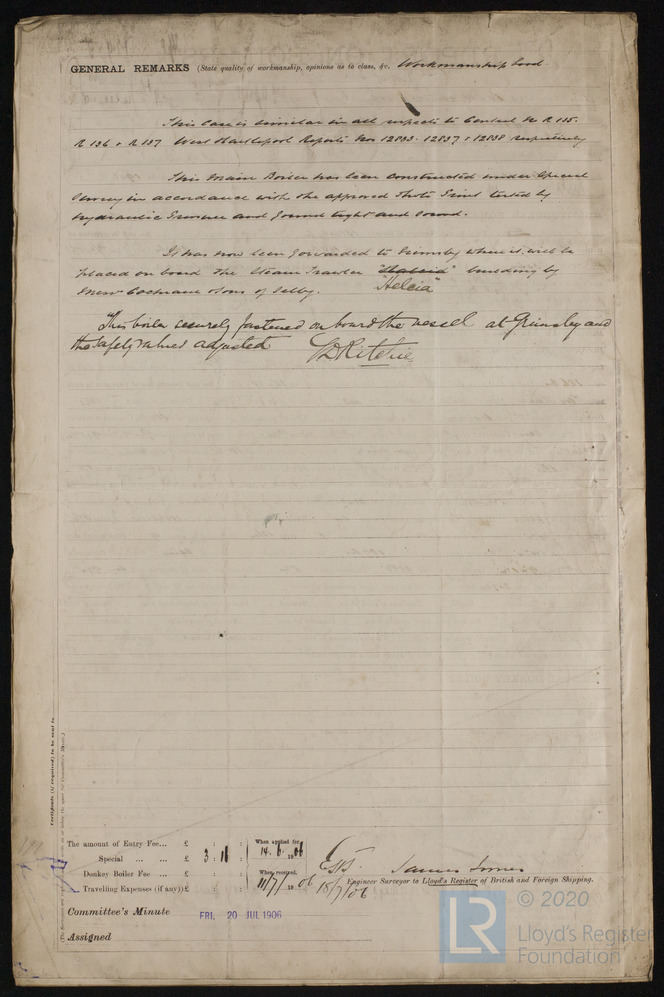 GENERAL REMARKS (State quality of workmanship, opinions as to class, &c. Workmanship Good
This Case is similar in all respects to Contract No R 135.
R 136 & R 137 West Hartlepool Reports Nos 12837 & 12838 respectively
This Main Boiler has been constructed under Special
Survey in accordance with the approved Photo Print tested by
Hydraulic Pressure and found tight and sound.
It has now been forwarded to Grimsby where it will be
placed on board the Steam Trawler building by
"Helcia"
Messrs Cochrane & Sons of Selby.
This boiler securely fastened on board the vessel at Grimsby and
the safety valves adjusted
Ritchie
Certificate (if required) to be sent to
The amount of Entry Fee... £ : :
Special ... ... £ 3 : 16 :
Donkey Boiler Fee ... £ : :
Travelling Expenses (if any) £ : :
When applied for,
14. 6. 1906
When received,
11/7/1906
18/7/06
James Jones
Engineer Surveyor to Lloyd's Register of British and Foreign Shipping.
Committee's Minute
FRI. 20 JUL 1906
Assigned
© 2020
LR
Lloyd's Register
Foundation